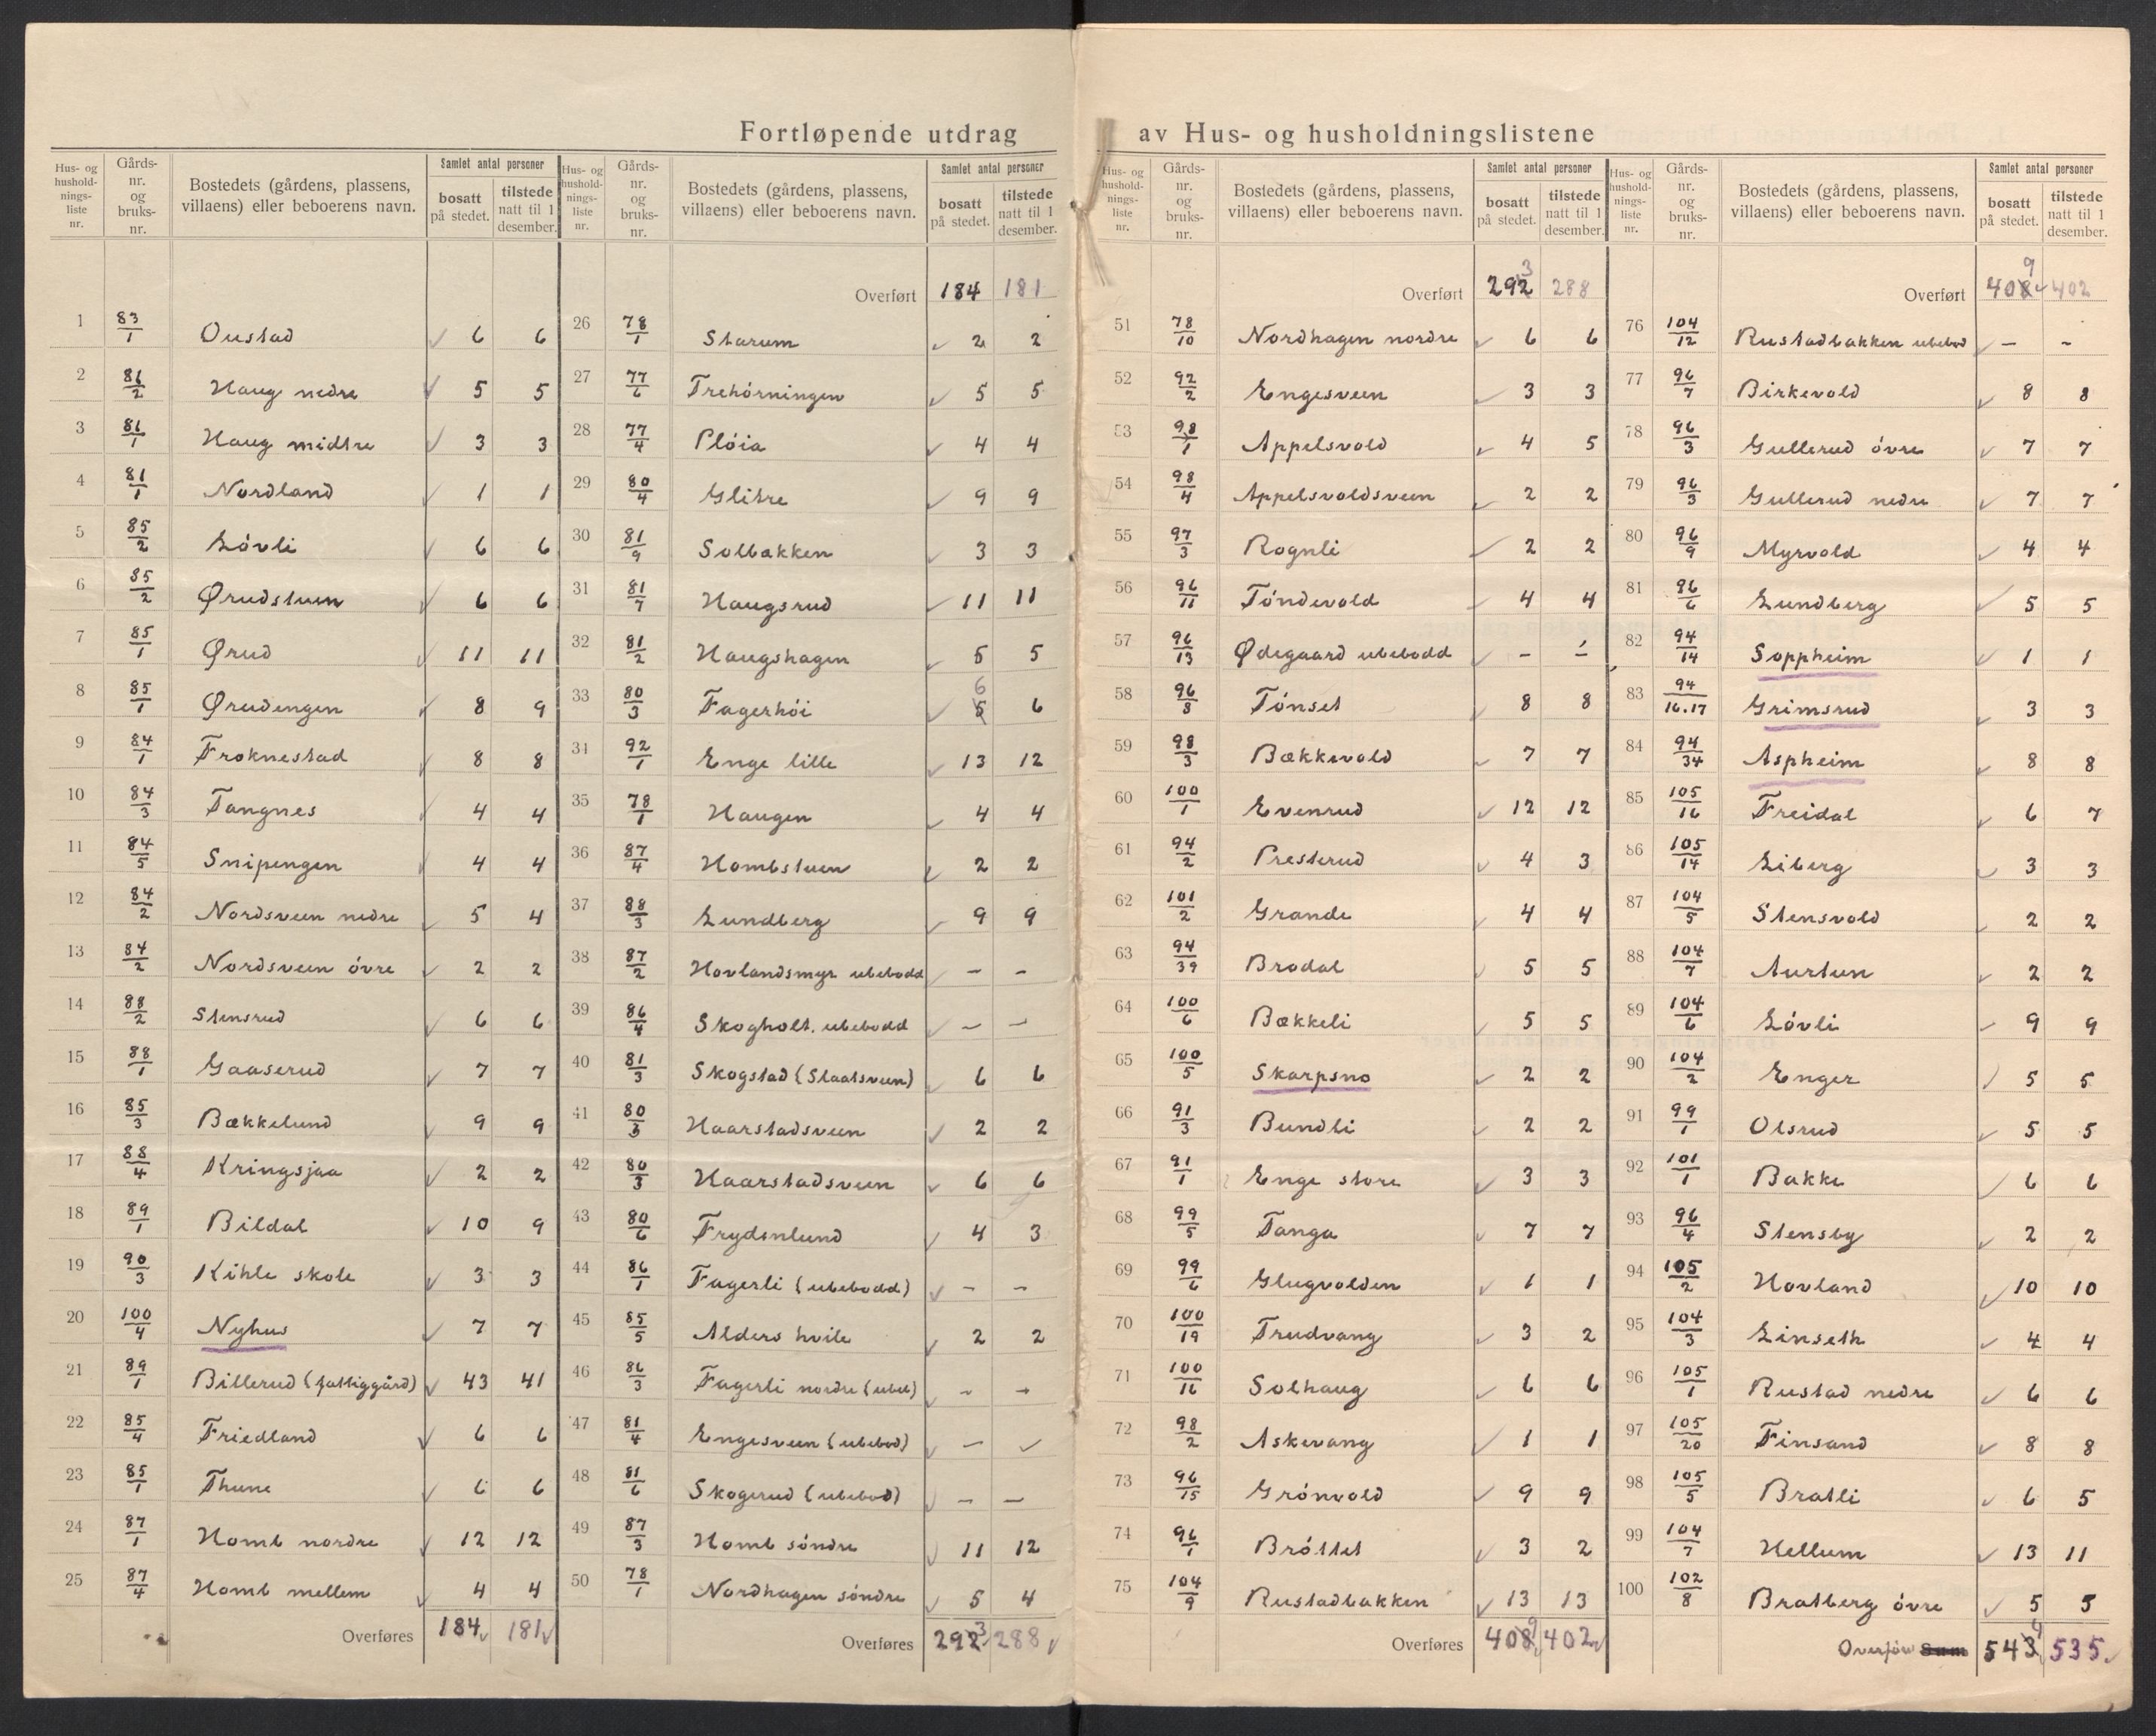 Fortløpende utdrag av Hus- og husholdningslistene
Hus- og hushold- nings- liste nr. | Gårds- nr. og bruks- nr. | Bostedets (gårdens, plassens, villaens) eller beboerens navn. | Samlet antal personer | bosatt på stedet. | tilstede natt til 1 desember.
1 83/1 Oustad 6 6
2 86/2 Haug nedre 5 5
3 86/1 Haug midtre 3 3
4 81/1 Nordland 1 1
5 85/2 Lövli 6 6
6 85/2 Ørudstuen 6 6
7 85/1 Ørud 11 11
8 85/1 Ørudengen 8 9
9 84/1 Froknestad 8 8
10 84/3 Tangnes 4 4
11 84/5 Snipengen 4 4
12 84/2 Nordsveen nedre 5 4
13 84/2 Nordsveen övre 2 2
14 88/2 Stensrud 6 6
15 88/1 Gaaserud 7 7
16 85/3 Bækkelund 9 9
17 88/4 Kringsjaa 2 2
18 89/1 Bildal 10 9
19 90/3 Kihle skole 3 3
20 100/4 Nyhus 7 7
21 89/1 Billerud (fattiggård) 43 41
22 85/4 Friedland 6 6
23 85/1 Thune 6 6
24 87/1 Homb nordre 12 12
25 87/4 Homb mellem 4 4
Overføres 184 181
Hus- og hushold- nings- liste nr. | Gårds- nr. og bruks- nr. | Bostedets (gårdens, plassens, villaens) eller beboerens navn. | Samlet antal personer | bosatt på stedet. | tilstede natt til 1 desember.
Overført 184 181
26 78/1 Starum 2 2
27 77/6 Trehörningen 5 5
28 77/4 Plöia 4 4
29 80/4 Glitre 9 9
30 81/9 Solbakken 3 3
31 81/7 Haugsrud 11 11
32 81/2 Haugshagen 5 5
33 80/3 Fagerhöi 5 6 6
34 92/1 Enge lille 13 12
35 78/1 Haugen 4 4
36 87/4 Hombstuen 2 2
37 88/3 Lundberg 9 9
38 87/2 Hovlandsmyr ubebodd - -
39 86/4 Skogholt. ubebodd - -
40 81/3 Skogstad (Slaatsveen) 6 6
41 80/3 Haarstadsveen 2 2
42 80/3 Haarstadsveen 6 6
43 80/6 Frydenlund 4 3
44 86/1 Fagerli (ubebodd) - -
45 85/5 Alders hvile 2 2
46 86/3 Fagerli nordre (ubeb) - -
47 81/4 Engesveen (ubebod) -
48 81/6 Skogerud (ubebod) - -
49 87/3 Homb söndre 11 12
50 78/1 Nordhagen söndre 5 4
Overføres 292 3 288
Hus- og hushold- nings- liste nr. | Gårds- nr. og bruks- nr. | Bostedets (gårdens, plassens, villaens) eller beboerens navn. | Samlet antal personer | bosatt på stedet. | tilstede natt til 1 desember.
Overført 292 3 288
51 78/10 Nordhagen nordre 6 6
52 92/2 Engesveen 3 3
53 98/1 Appelsvold 4 5
54 98/4 Appelsvoldsveen 2 2
55 97/3 Rognli 2 2
56 96/11 Töndevold 4 4
57 96/13 Ødegaard ubebodd - -
58 96/8 Tönset 8 8
59 98/3 Bækkevold 7 7
60 100/1 Evenrud 12 12
61 94/2 Presterud 4 3
62 101/2 Grande 4 4
63 94/39 Brodal 5 5
64 100/6 Bækkeli 5 5
65 100/5 Skarpsno 2 2
66 91/3 Bundli 2 2
67 91/1 Enge store 3 3
68 99/5 Tanga 7 7
69 99/6 Glugvolden 1 1
70 100/19 Trudvang 3 2
71 100/16 Solhaug 6 6
72 98/2 Askevang 1 1
73 96/15 Grönvold 9 9
74 96/1 Bröttet 3 2
75 104/9 Rustadbakken 13 13
Overføres 408 9 402
Hus- og hushold- nings- liste nr. | Gårds- nr. og bruks- nr. | Bostedets (gårdens, plassens, villaens) eller beboerens navn. | Samlet antal personer | bosatt på stedet. | tilstede natt til 1 desember.
Overført 408 9 402
76 104/12 Rustadbakken ubebod - -
77 96/7 Birkevold 8 8
78 96/3 Gullerud övre 7 7
79 96/3 Gullerud nedre 7 7
80 96/9 Myrvold 4 4
81 96/6 Lundberg 5 5
82 94/14 Soppheim 1 1
83 94/16.17 Grimsrud 3 3
84 94/34 Aspheim 8 8
85 105/16 Freidal 6 7
86 105/14 Liberg 3 3
87 104/5 Stensvold 2 2
88 104/7 Aurtun 2 2
89 104/6 Lövli 9 9
90 104/2 Enger 5 5
91 99/1 Olsrud 5 5
92 101/1 Bakke 6 6
93 96/4 Stensby 2 2
94 105/2 Hovland 10 10
95 104/3 Linseth 4 4
96 105/1 Rustad nedre 6 6
97 105/20 Finsand 8 8
98 105/5 Bratli 6 5
99 104/7 Hellum 13 11
100 102/8 Bratberg övre 5 5
Sum 543 4 535